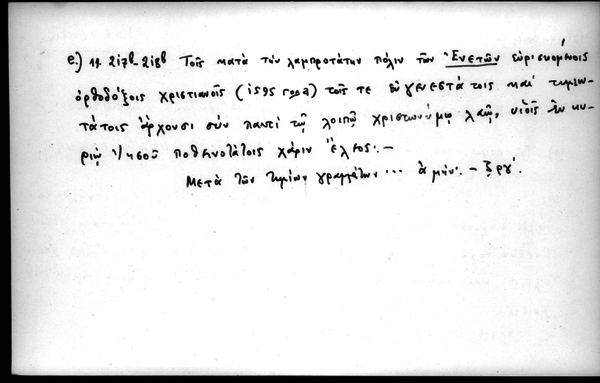 e.) 11 217β-218β Τοῖς κατὰ τὴν λαμπροτάτην πόλιν τῶν Ἐνετῶν εὑρισκομένοις
ὀρθοδόξοις χριστιανοῖς (1595) τοῖς τε εὐγενεστάτοις καὶ τιμιω-
τάτοις ἄρχουσι σὺν παντὶ τῷ λοιπῷ χριστωνύμῳ λαῷ, υἱοῖς ἐν κυ-
ρίῳ Ἰησοῦ ποθεινοτάτοις χάριν ἔλεος. –
Μετὰ τῶν τιμίων γραμμάτων ... ἀμήν. –